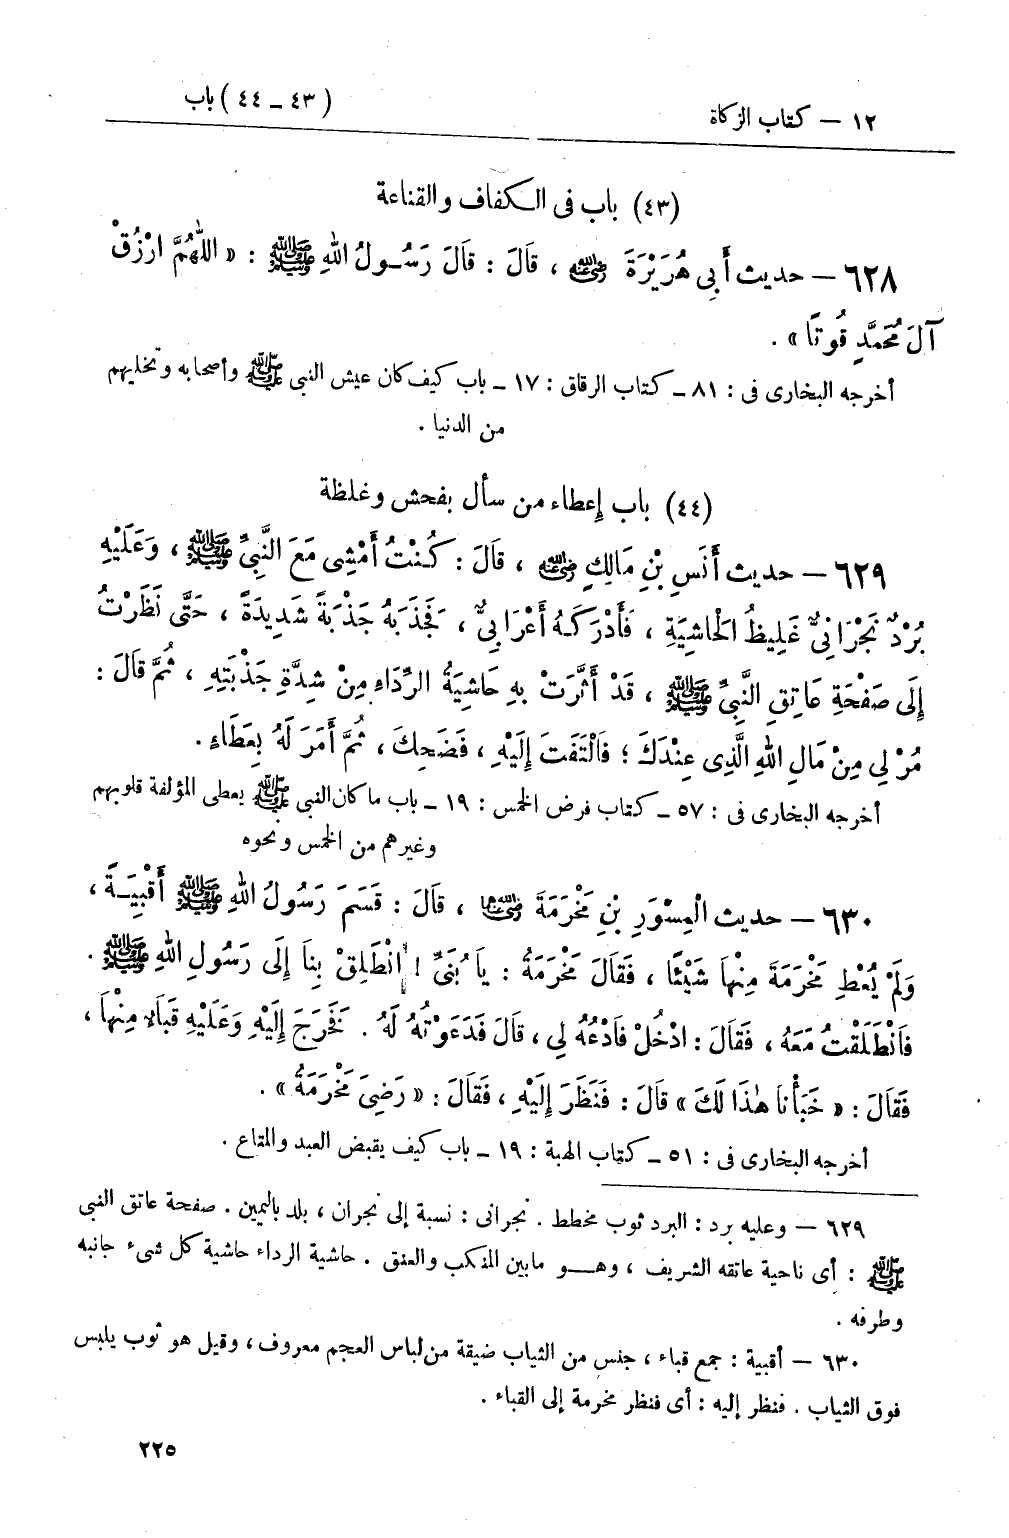 ١٢ — كتاب الزكاة (٤٣ ـ ٤٤) باب
(٤٣) باب فى الكفاف والقناعة
٦٢٨ — حديث أَبِي هُرَيْرَةَ رضي الله عنه ، قَالَ : قَالَ رَسُولُ اللهِ ﷺ : « اللَّهُمَّ ارْزُقْ
آلَ مُحَمَّدٍ قُوتًا » .
أخرجه البخارى فى : ٨١ ـ كتاب الرقاق : ١٧ ـ باب كيف كان عيش النبى ﷺ وأصحابه وتخليهم
من الدنيا .
(٤٤) باب إعطاء من سأل بفحش وغلظة
٦٢٩ — حديث أَنَسِ بْنِ مَالِكٍ رضي الله عنه ، قَالَ : كُنْتُ أَمْشِى مَعَ النَّبِىِّ ﷺ ، وَعَلَيْهِ
بُرْدٌ نَجْرَانِىٌّ غَلِيظُ الْحَاشِيَةِ ، فَأَدْرَكَهُ أَعْرَابِىٌّ ، فَجَذَبَهُ جَذْبَةً شَدِيدَةً ، حَتَّى نَظَرْتُ
إِلَى صَفْحَةِ عَاتِقِ النَّبِىِّ ﷺ ، قَدْ أَثَّرَتْ بِهِ حَاشِيَةُ الرِّدَاءِ مِنْ شِدَّةِ جَذْبَتِهِ ، ثُمَّ قَالَ :
مُرْ لِى مِنْ مَالِ اللهِ الَّذِى عِنْدَكَ ؛ فَالْتَفَتَ إِلَيْهِ ، فَضَحِكَ ، ثُمَّ أَمَرَ لَهُ بِعَطَاءٍ .
أخرجه البخارى فى : ٥٧ ـ كتاب فرض الخمس : ١٩ ـ باب ما كان النبى ﷺ يعطى المؤلفة قلوبهم
وغيرهم من الخمس ونحوه
٦٣٠ — حديث الْمِسْوَرِ بْنِ مَخْرَمَةَ رضي الله عنهما ، قَالَ : قَسَمَ رَسُولُ اللهِ ﷺ أَقْبِيَةً ،
وَلَمْ يُعْطِ مَخْرَمَةَ مِنْهَا شَيْئًا ، فَقَالَ مَخْرَمَةُ : يَا بُنَىَّ ! انْطَلِقْ بِنَا إِلَى رَسُولِ اللهِ ﷺ .
فَانْطَلَقْتُ مَعَهُ ، فَقَالَ : ادْخُلْ فَادْعُهُ لِى ، قَالَ فَدَعَوْتُهُ لَهُ . فَخَرَجَ إِلَيْهِ وَعَلَيْهِ قَبَاءٌ مِنْهَا ،
فَقَالَ : « خَبَأْنَا هٰذَا لَكَ » قَالَ : فَنَظَرَ إِلَيْهِ ، فَقَالَ : « رَضِىَ مَخْرَمَةُ » .
أخرجه البخارى فى : ٥١ ـ كتاب الهبة : ١٩ ـ باب كيف يقبض العبد والمتاع .
٦٢٩ — وعليه برد : البرد ثوب مخطط . نجرانى : نسبة إلى نجران ، بلد باليمين . صفحة عاتق النبى
ﷺ : أى ناحية عاتقه الشريف ، وهو مابين المنكب والعنق . حاشية الرداء حاشية كل شىء جانبه
وطرفه .
٦٣٠ — أقبية : جمع قباء ، جنس من الثياب ضيقة من لباس العجم معروف ، وقيل هو ثوب يلبس
فوق الثياب . فنظر إليه : أى فنظر مخرمة إلى القباء .
٢٢٥